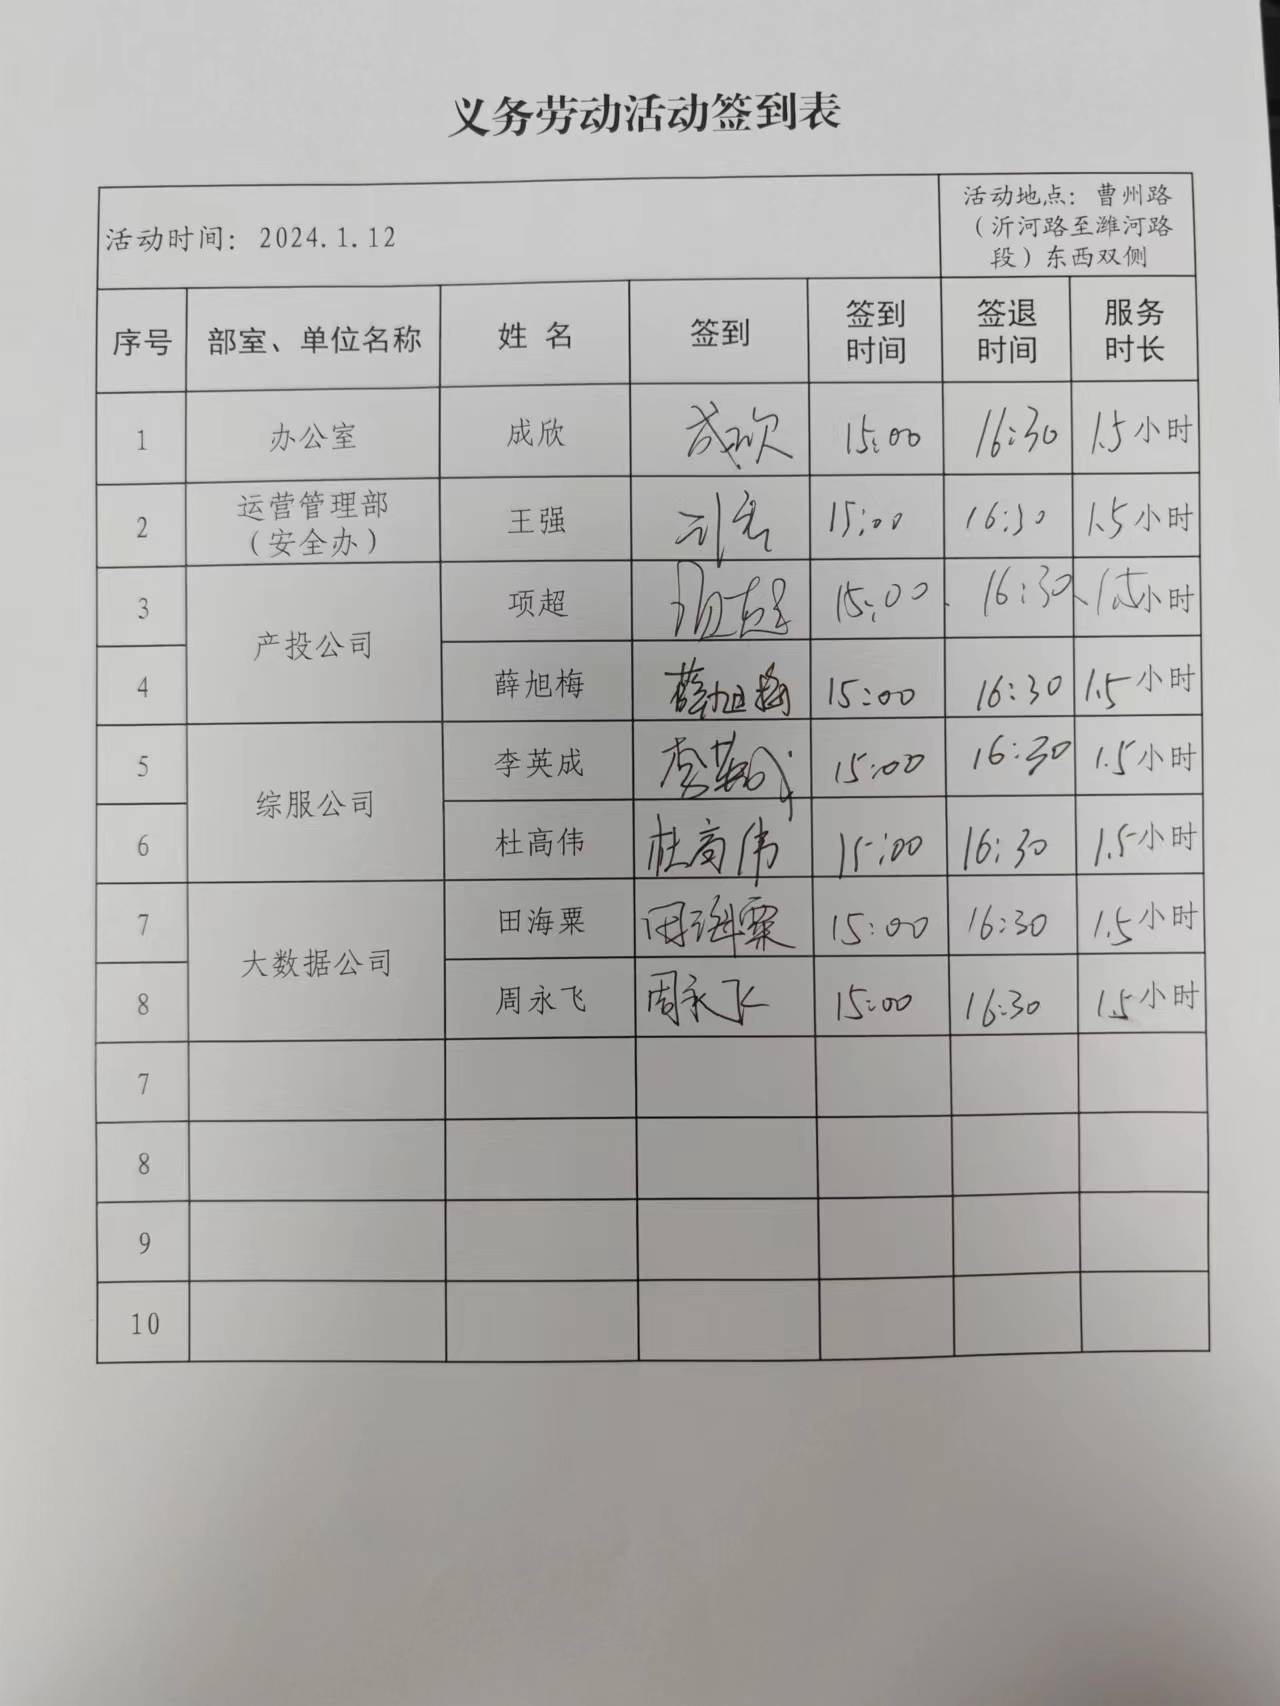 义务劳动活动签到表
活动时间：2024.1.12
活动地点：曹州路
（沂河路至潍河路
段）东西双侧
序号 部室、单位名称 姓 名 签到 签到时间 签退时间 服务时长
1 办公室 成欣 成欣 15:00 16:30 1.5小时
2 运营管理部（安全办） 王强 15:00 16:30 1.5小时
3 产投公司 项超 项超 15:00 16:30 1.5小时
4 薛旭梅 薛旭梅 15:00 16:30 1.5小时
5 综服公司 李英成 李英成 15:00 16:30 1.5小时
6 杜高伟 杜高伟 15:00 16:30 1.5小时
7 大数据公司 田海粟 田海粟 15:00 16:30 1.5小时
8 周永飞 周永飞 15:00 16:30 1.5小时
7
8
9
10